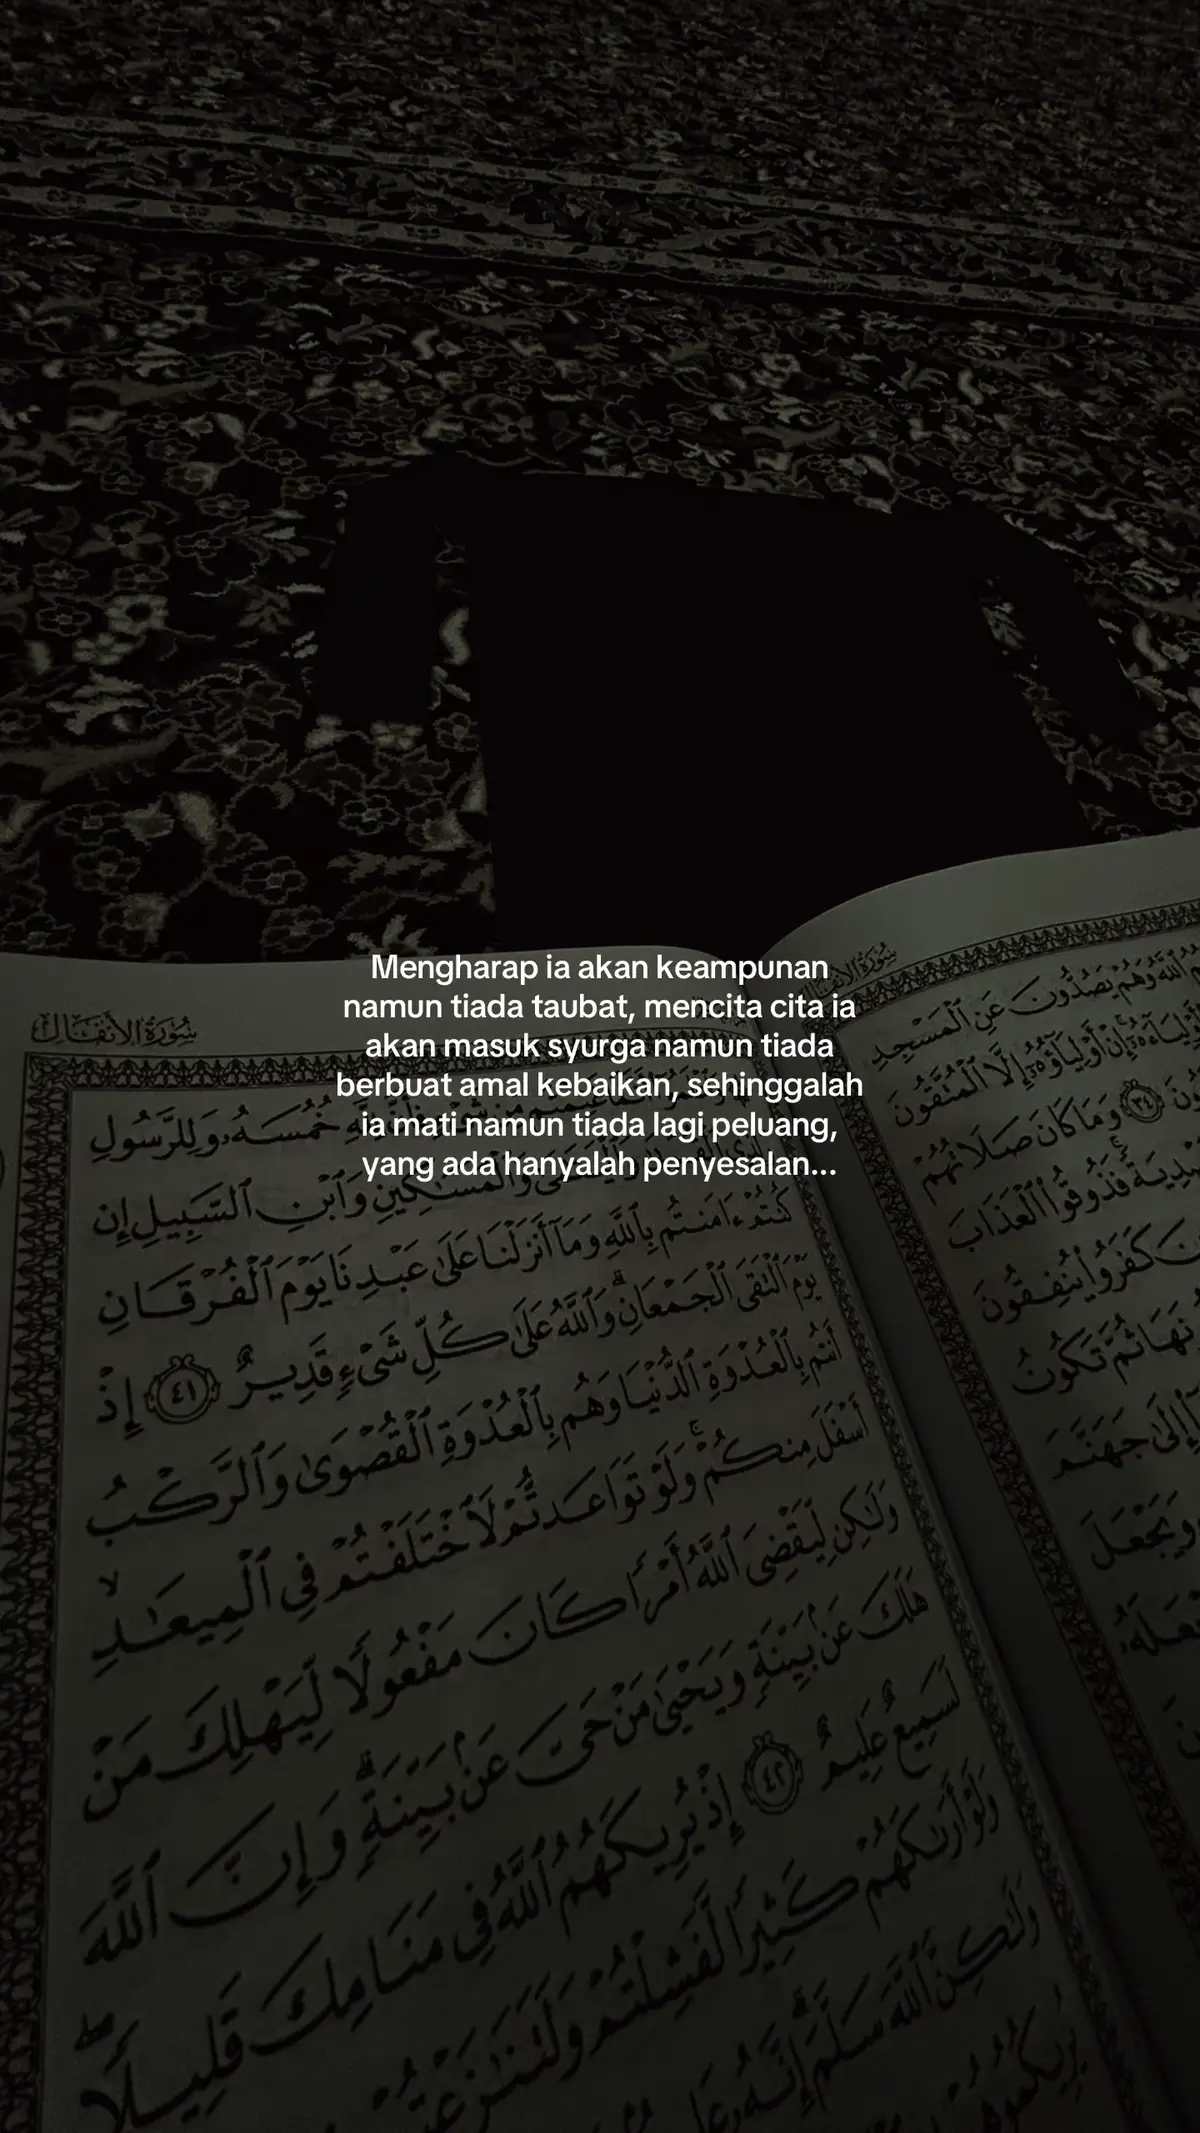 Mengharap ia akan keampunan
namun tiada taubat, mencita cita ia
akan masuk syurga namun tiada
berbuat amal kebaikan, sehinggalah
ia mati namun tiada lagi peluang,
yang ada hanyalah penyesalan...
سُورَةُ الأَنفَالِ
خُمُسَهُۥ وَلِلرَّسُولِ
وَٱلْمَسَٰكِينِ وَٱبْنِ ٱلسَّبِيلِ إِن
كُنتُمْ ءَامَنتُم بِٱللَّهِ وَمَآ أَنزَلْنَا عَلَىٰ عَبْدِنَا يَوْمَ ٱلْفُرْقَانِ
يَوْمَ ٱلْتَقَى ٱلْجَمْعَانِ ۗ وَٱللَّهُ عَلَىٰ كُلِّ شَىْءٍ قَدِيرٌ ٤١ إِذْ
أَنتُم بِٱلْعُدْوَةِ ٱلدُّنْيَا وَهُم بِٱلْعُدْوَةِ ٱلْقُصْوَىٰ وَٱلرَّكْبُ
أَسْفَلَ مِنكُمْ ۚ وَلَوْ تَوَاعَدتُّمْ لَٱخْتَلَفْتُمْ فِى ٱلْمِيعَٰدِ ۙ
وَلَٰكِن لِّيَقْضِىَ ٱللَّهُ أَمْرًا كَانَ مَفْعُولًا لِّيَهْلِكَ مَنْ
هَلَكَ عَنۢ بَيِّنَةٍ وَيَحْيَىٰ مَنْ حَىَّ عَنۢ بَيِّنَةٍ ۗ وَإِنَّ ٱللَّهَ
لَسَمِيعٌ عَلِيمٌ ٤٢ إِذْ يُرِيكَهُمُ ٱللَّهُ فِى مَنَامِكَ قَلِيلًا ۖ
وَلَوْ أَرَىٰكَهُمْ كَثِيرًا لَّفَشِلْتُمْ وَلَتَنَٰزَعْتُمْ
وَلَٰكِنَّ ٱللَّهَ سَلَّمَ ۗ إِنَّهُۥ
يُرِيكُمُوهُمْ
سُورَةُ الأَنفَالِ
ٱللَّهُ وَهُمْ يَصُدُّونَ عَنِ ٱلْمَسْجِدِ
إِنْ أَوْلِيَآؤُهُۥٓ إِلَّا ٱلْمُتَّقُونَ
٣٤ وَمَا كَانَ صَلَاتُهُمْ
فَذُوقُوا۟ ٱلْعَذَابَ
كَفَرُوا۟ يُنفِقُونَ
ثُمَّ تَكُونُ
إِلَىٰ جَهَنَّمَ
وَيَجْعَلَ